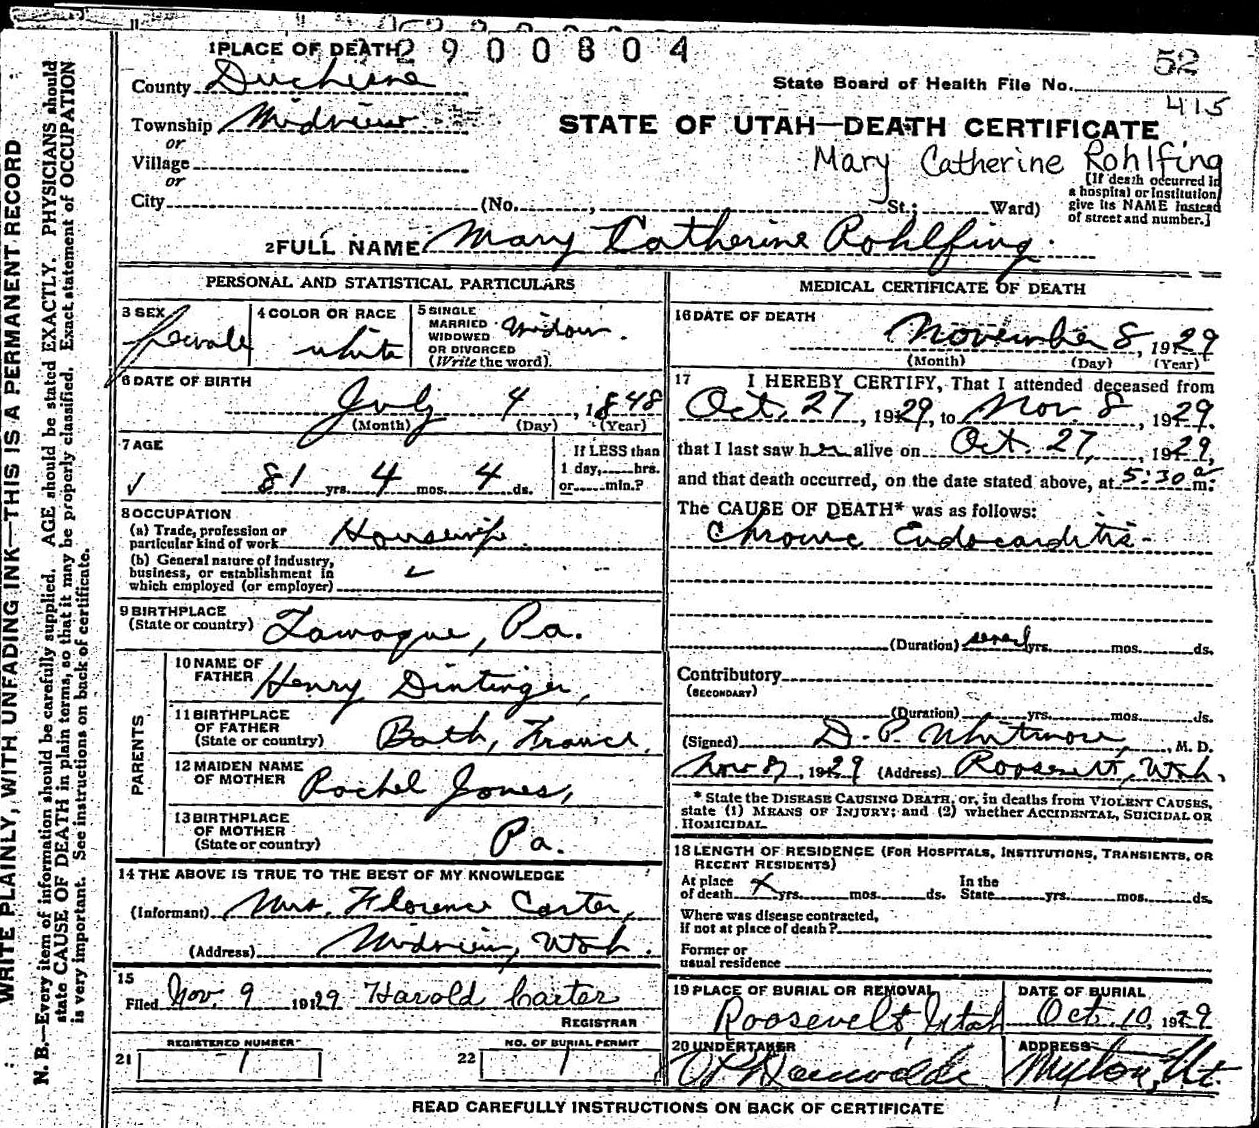 1 PLACE OF DEATH 2900804
52
County Duchesne
State Board of Health File No.
415
Township Midview
or
STATE OF UTAH—DEATH CERTIFICATE
Village
or
Mary Catherine Rohlfing
City (No. , St.; Ward)
[If death occurred in
a hospital or institution
give its NAME instead
of street and number.]
2 FULL NAME Mary Catherine Rohlfing.
PERSONAL AND STATISTICAL PARTICULARS
3 SEX female
4 COLOR OR RACE white
5 SINGLE
MARRIED
WIDOWED
OR DIVORCED
(Write the word).
Widow.
6 DATE OF BIRTH
July 4, 1848
(Month) (Day) (Year)
7 AGE
81 yrs. 4 mos. 4 ds.
If LESS than
1 day, hrs.
or min.?
8 OCCUPATION
(a) Trade, profession or
particular kind of work Housewife
(b) General nature of industry,
business, or establishment in
which employed (or employer)
9 BIRTHPLACE
(State or country) Pa.
PARENTS
10 NAME OF
FATHER Henry Dintinger,
11 BIRTHPLACE
OF FATHER
(State or country) Bath, France.
12 MAIDEN NAME
OF MOTHER Rachel Jones,
13 BIRTHPLACE
OF MOTHER
(State or country) Pa.
14 THE ABOVE IS TRUE TO THE BEST OF MY KNOWLEDGE
(Informant) Mrs. Florence Carter,
(Address) Midview, Utah.
15
Filed Nov. 9 1929 Harold Carter
REGISTRAR
21 REGISTERED NUMBER 1
22 NO. OF BURIAL PERMIT 1
MEDICAL CERTIFICATE OF DEATH
16 DATE OF DEATH
November 8, 1929
(Month) (Day) (Year)
17 I HEREBY CERTIFY, That I attended deceased from
Oct. 27, 1929, to Nov 8, 1929.
that I last saw her alive on Oct. 27, 1929,
and that death occurred, on the date stated above, at 5:30 a m.
The CAUSE OF DEATH* was as follows:
Chronic Endocarditis
(Duration) several yrs. mos. ds.
Contributory
(SECONDARY)
(Duration) yrs. mos. ds.
(Signed) D. P. Whitmore, M. D.
Nov 8, 1929 (Address) Roosevelt, Utah.
* State the DISEASE CAUSING DEATH, or, in deaths from VIOLENT CAUSES,
state (1) MEANS OF INJURY; and (2) whether ACCIDENTAL, SUICIDAL OR
HOMICIDAL.
18 LENGTH OF RESIDENCE (FOR HOSPITALS, INSTITUTIONS, TRANSIENTS, OR
RECENT RESIDENTS)
At place
of death X yrs. mos. ds.
In the
State yrs. mos. ds.
Where was disease contracted,
if not at place of death?
Former or
usual residence
19 PLACE OF BURIAL OR REMOVAL
Roosevelt, Utah
DATE OF BURIAL
Oct. 10, 1929
20 UNDERTAKER
ADDRESS
Myton, Ut.
READ CAREFULLY INSTRUCTIONS ON BACK OF CERTIFICATE
WRITE PLAINLY, WITH UNFADING INK—THIS IS A PERMANENT RECORD
N. B.—Every item of information should be carefully supplied. AGE should be stated EXACTLY. PHYSICIANS should
state CAUSE OF DEATH in plain terms, so that it may be properly classified. Exact statement of OCCUPATION
is very important. See instructions on back of certificate.